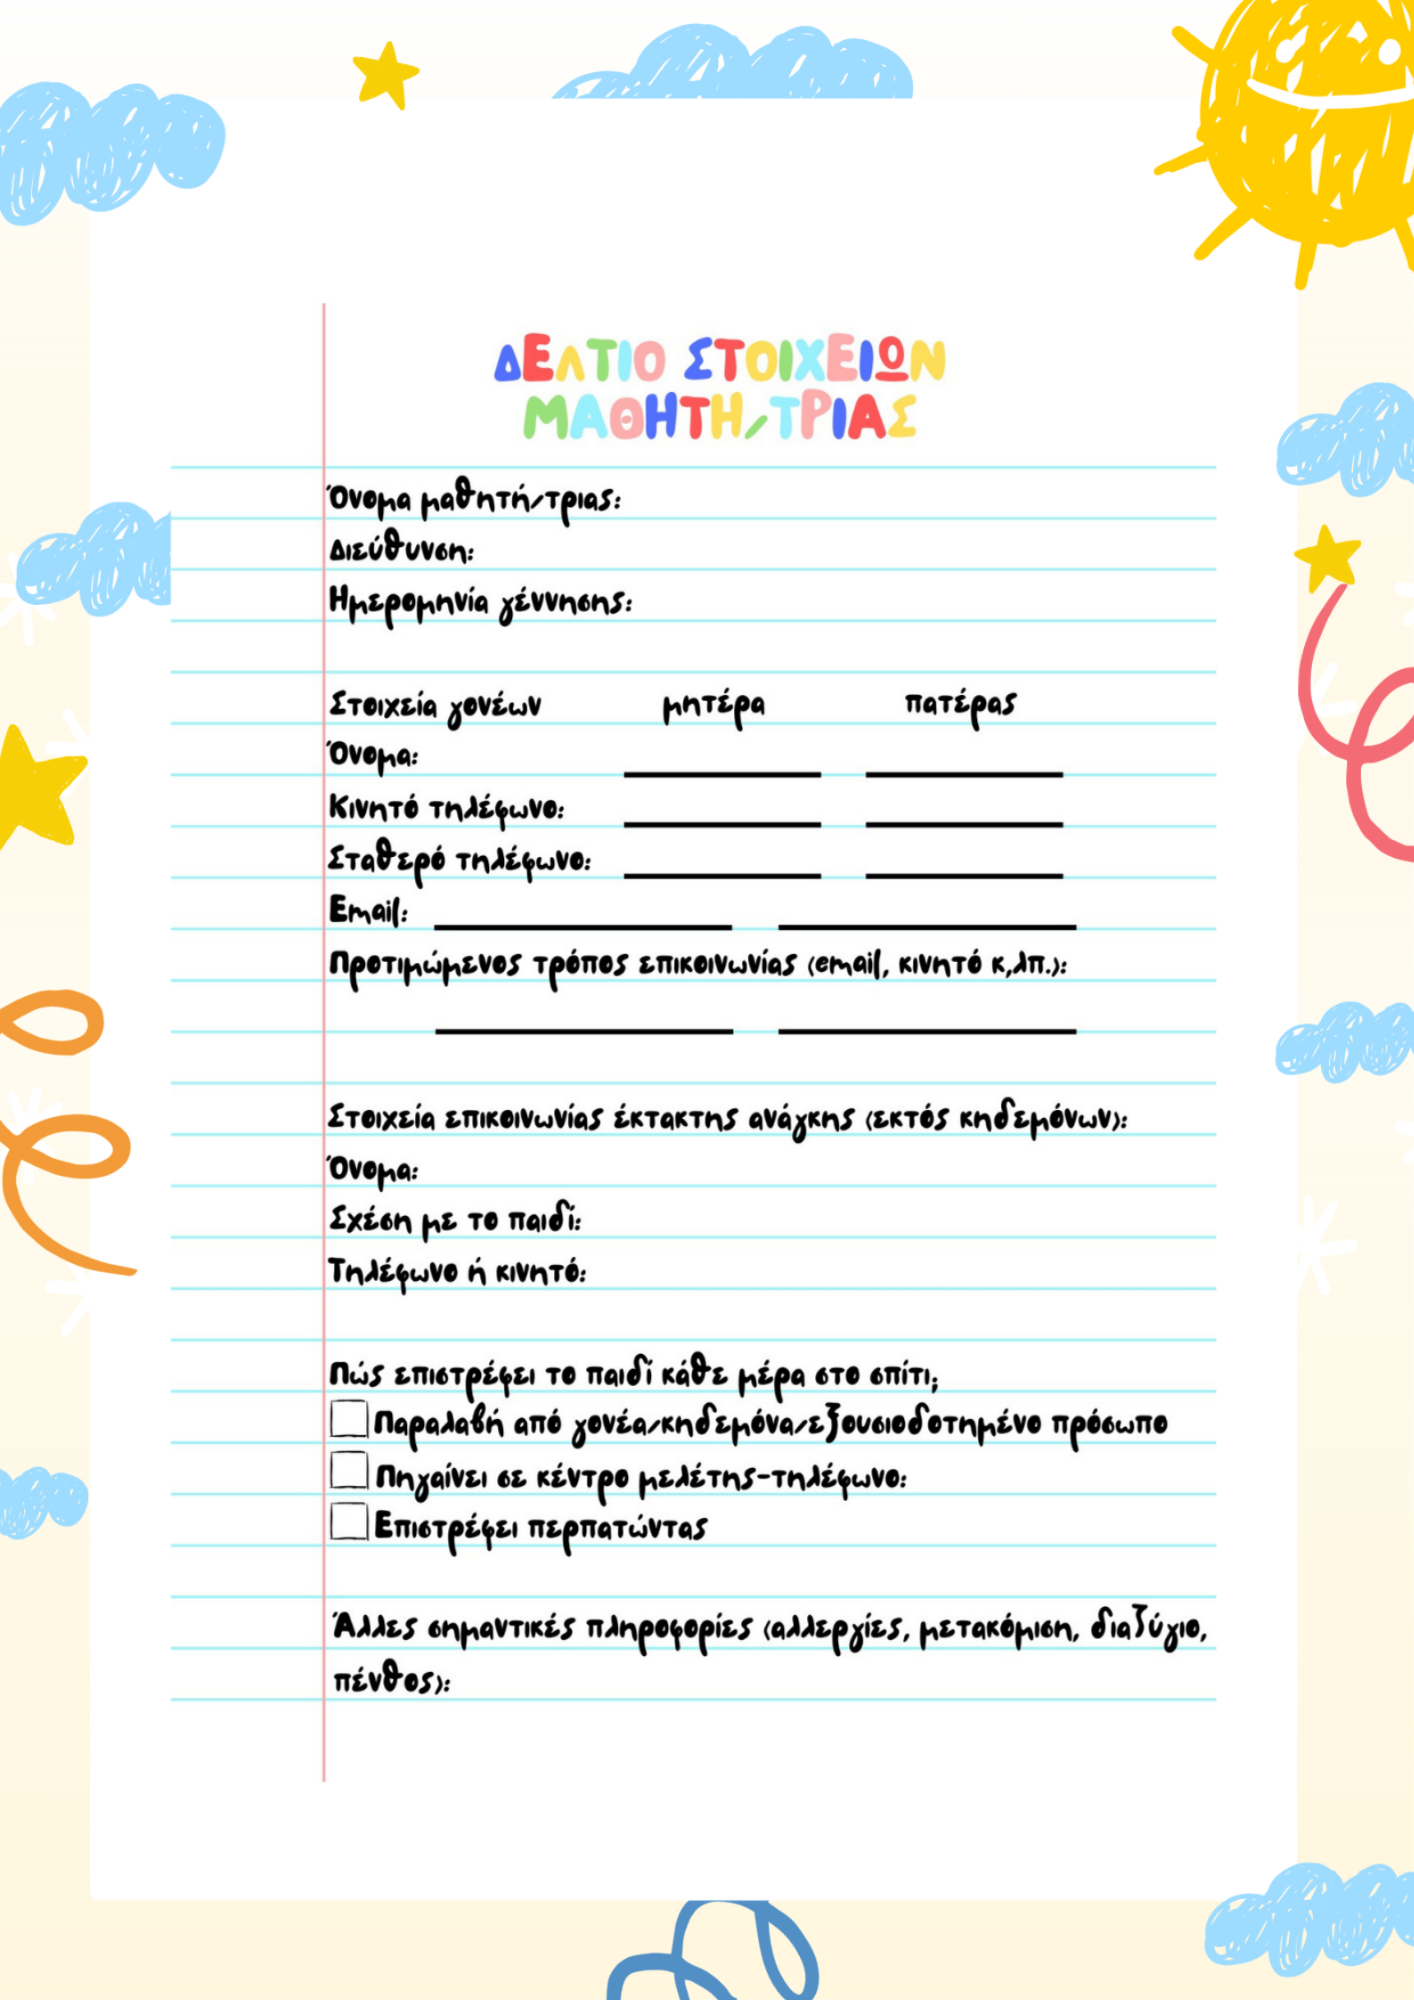 ΔΕΛΤΙΟ ΣΤΟΙΧΕΙΩΝ
ΜΑΘΗΤΗ/ΤΡΙΑΣ
Όνομα μαθητή/τριας:
Διεύθυνση:
Ημερομηνία γέννησης:
Στοιχεία γονέων μητέρα πατέρας
Όνομα:
Κινητό τηλέφωνο:
Σταθερό τηλέφωνο:
Email:
Προτιμώμενος τρόπος επικοινωνίας (email, κινητό κ,λπ.):
Στοιχεία επικοινωνίας έκτακτης ανάγκης (εκτός κηδεμόνων):
Όνομα:
Σχέση με το παιδί:
Τηλέφωνο ή κινητό:
Πώς επιστρέφει το παιδί κάθε μέρα στο σπίτι;
Παραλαβή από γονέα/κηδεμόνα/εξουσιοδοτημένο πρόσωπο
Πηγαίνει σε κέντρο μελέτης-τηλέφωνο:
Επιστρέφει περπατώντας
Άλλες σημαντικές πληροφορίες (αλλεργίες, μετακόμιση, διαζύγιο,
πένθος):